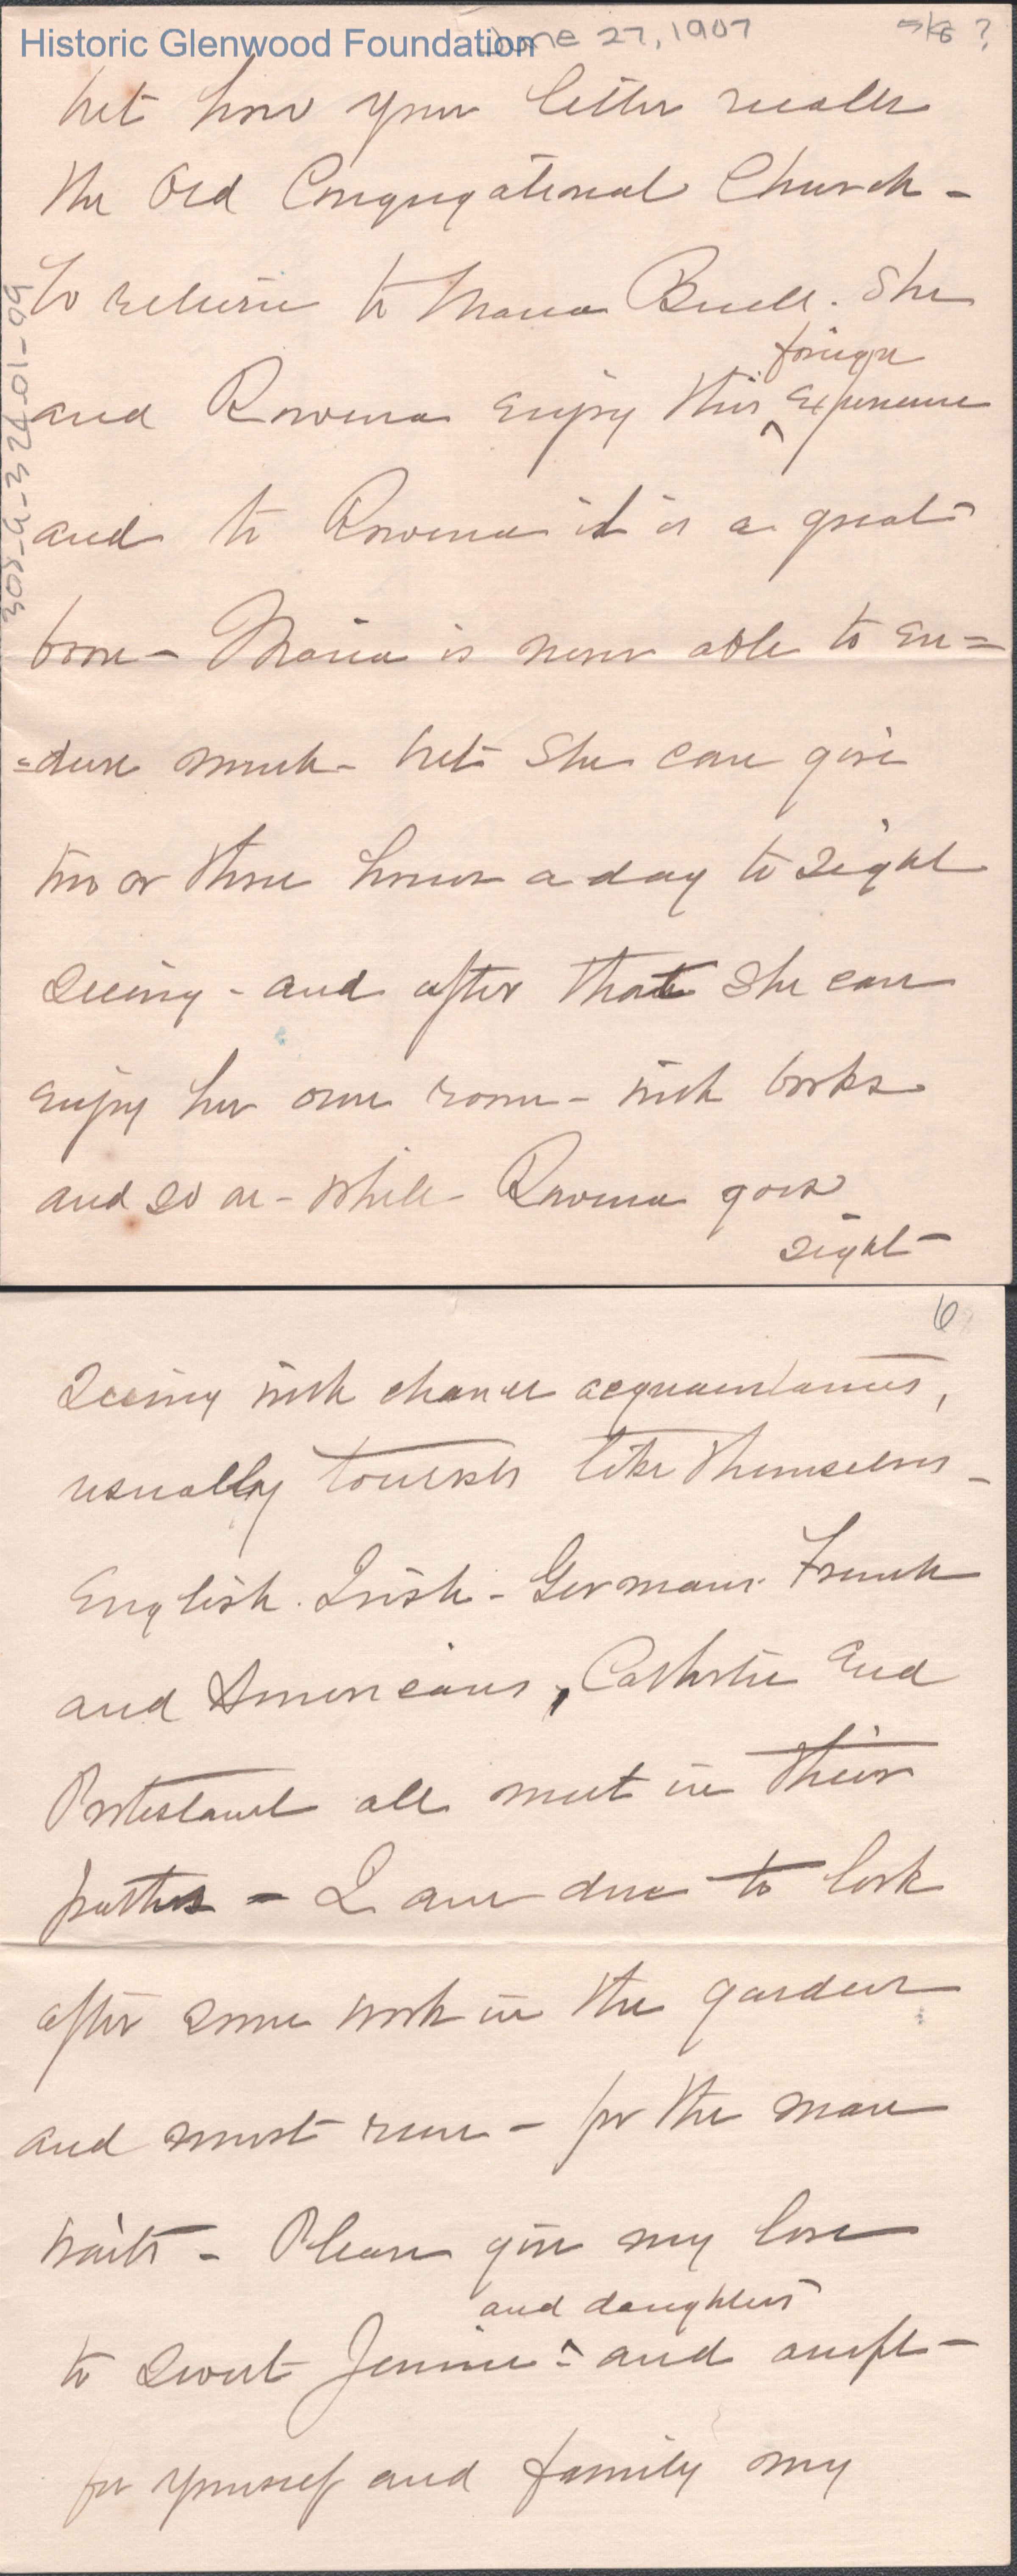 Historic Glenwood Foundation
June 27, 1907
but how your letter recalls
the Old Congregational Church -
To return to Maria Buell. She
foreign
and Rowena enjoy this ^ experience
and to Rowena it is a great
boon - Maria is never able to en=
=dure much - but she can give
two or three hours a day to sight
seeing - and after that she can
enjoy her own room - with books
and so on - while Rowena goes
sight -
305-5-324-01-09
6
seeing with chance acquaintances,
usually tourists like themselves -
English. Irish - Germans. French
and Americans, Catholic and
Protestant all meet in their
paths - I am due to look
after some work in the garden
and must run - for the man
waits - Please give my love
and daughters
to sweet Jennie ^ and accept -
for yourself and family my